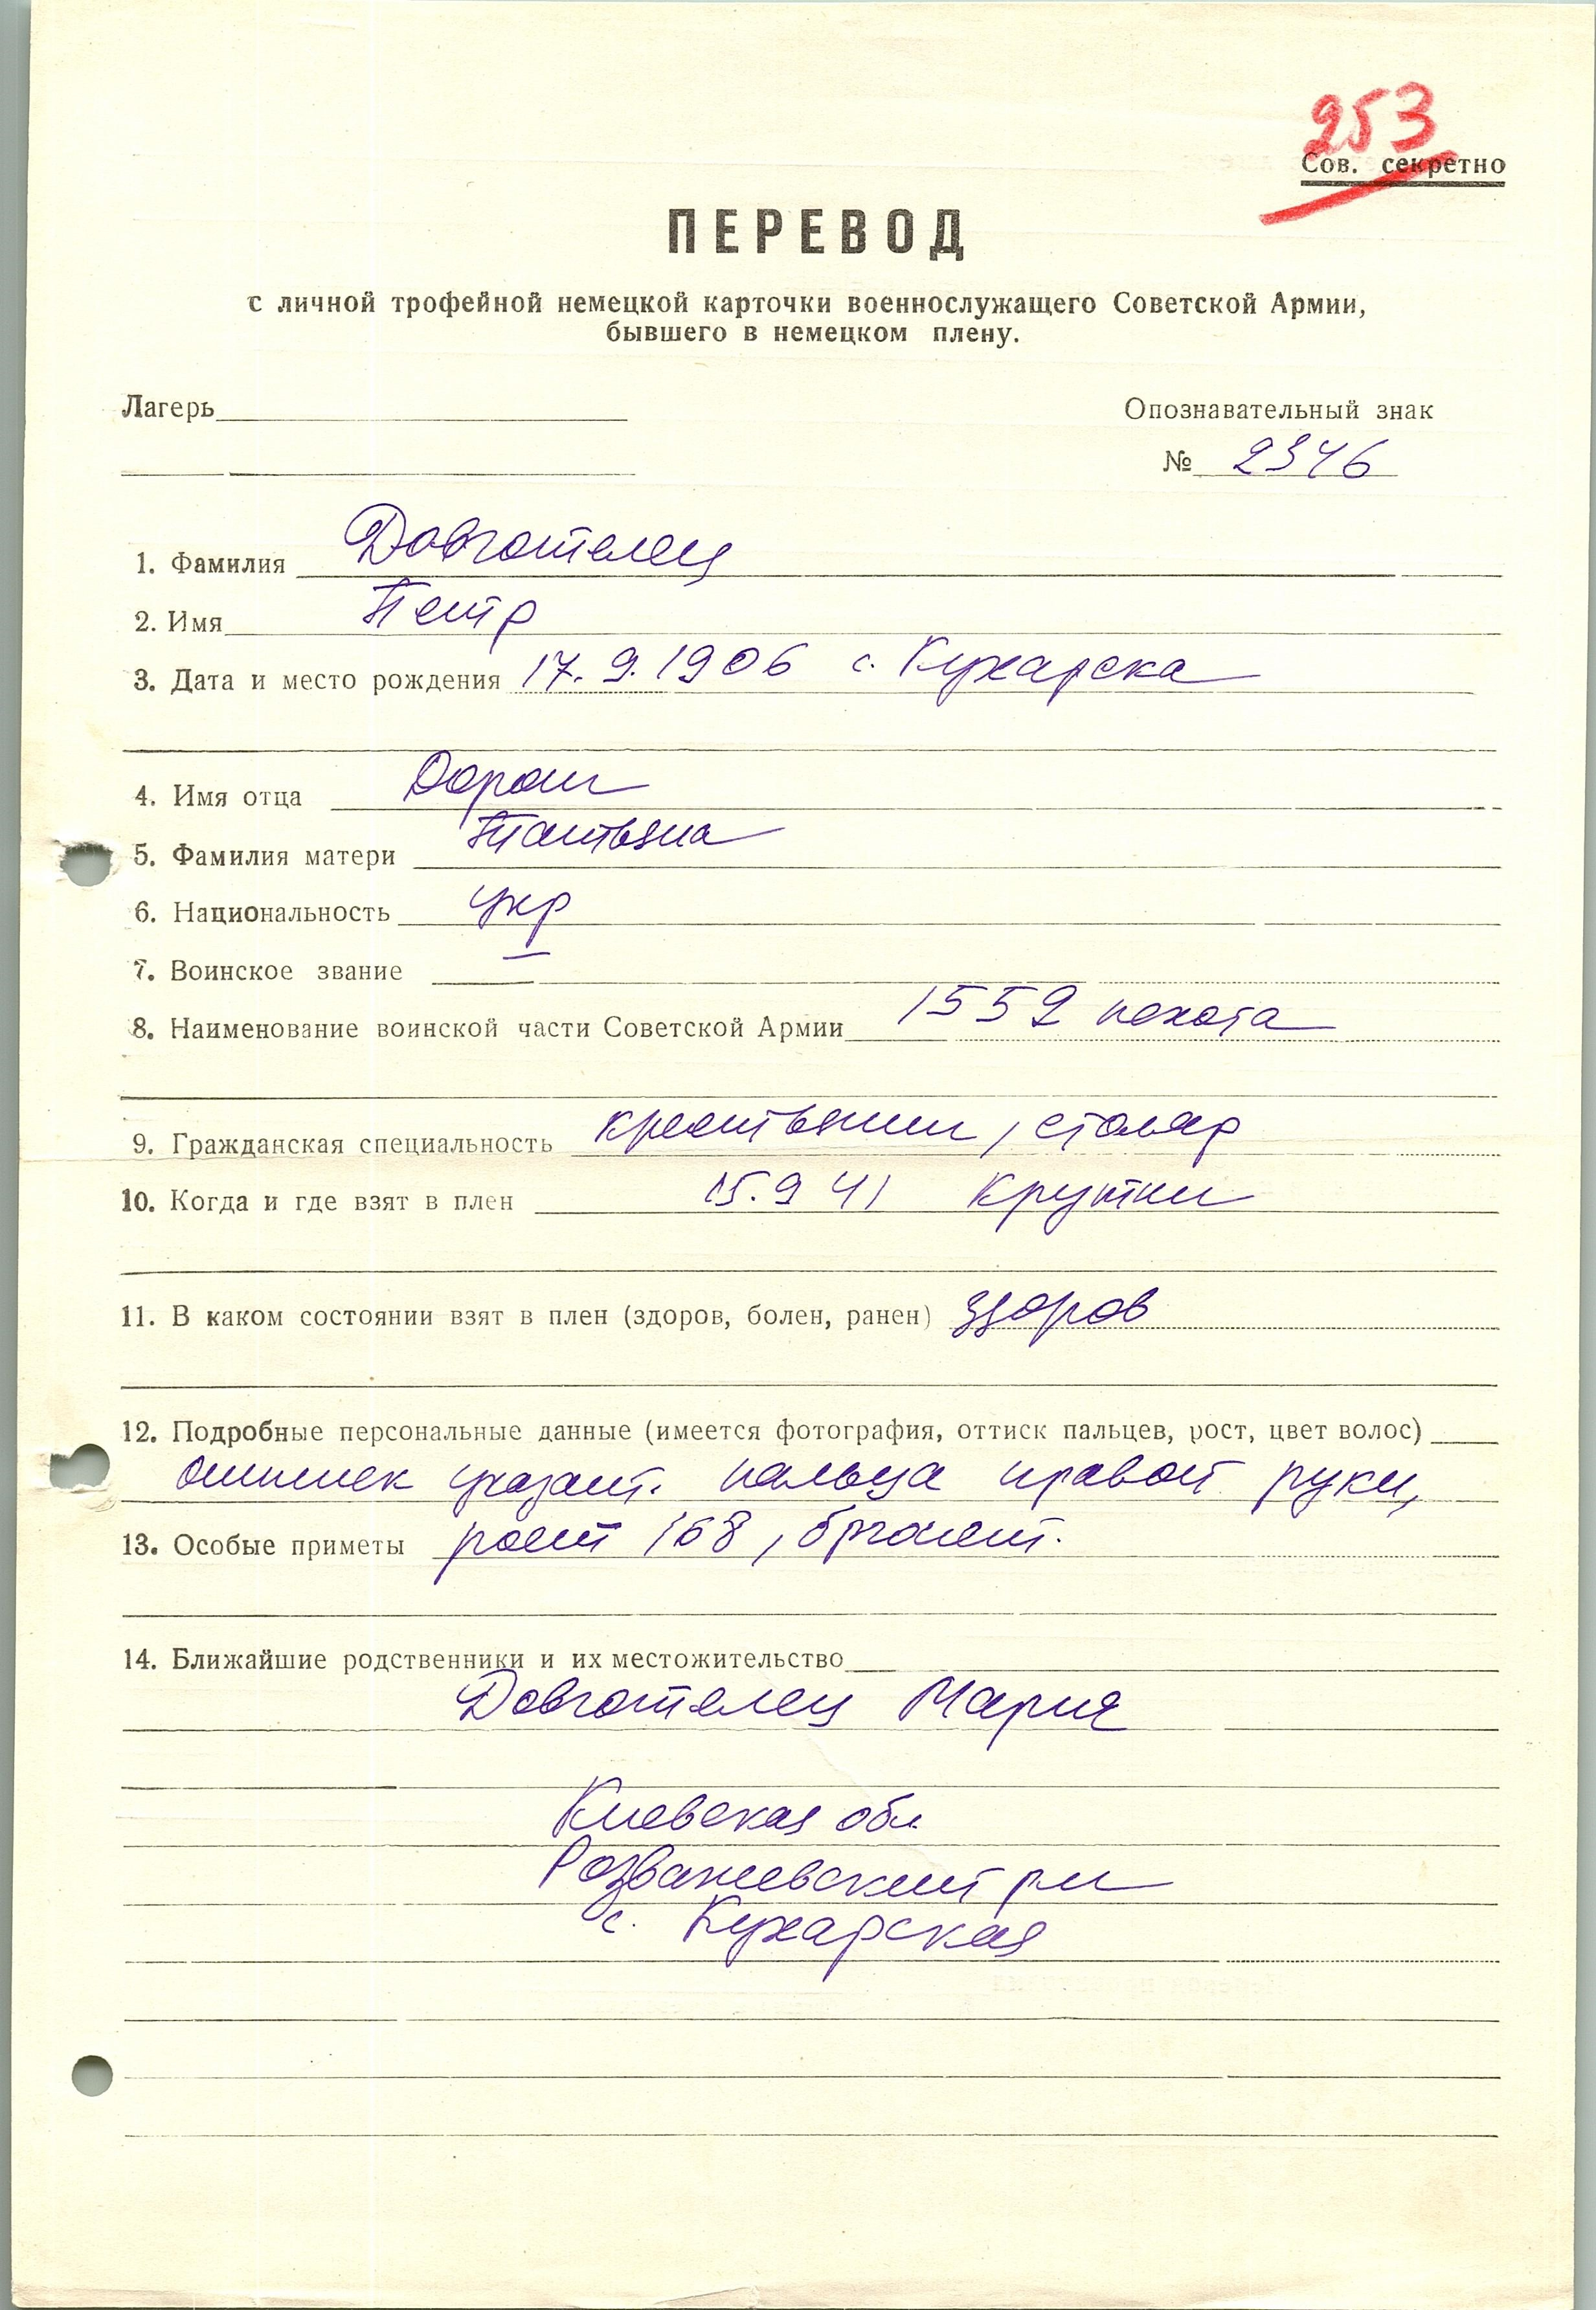 253
Сов. секретно
ПЕРЕВОД
с личной трофейной немецкой карточки военнослужащего Советской Армии,
бывшего в немецком плену.
Лагерь
Опознавательный знак
№ 2346
1. Фамилия Довготелец
2. Имя Петр
3. Дата и место рождения 17.9.1906 с. Кухарска
4. Имя отца Дорош
5. Фамилия матери Татьяна
6. Национальность укр
7. Воинское звание —
8. Наименование воинской части Советской Армии 1552 пехота
9. Гражданская специальность крестьянин, столяр
10. Когда и где взят в плен 15.9 41 Крутки
11. В каком состоянии взят в плен (здоров, болен, ранен) здоров
12. Подробные персональные данные (имеется фотография, оттиск пальцев, рост, цвет волос)
оттиск указат. пальца правой руки,
13. Особые приметы рост 168, брюнет.
14. Ближайшие родственники и их местожительство
Довготелец Мария
Киевская обл
Розважевский рн
с. Кухарская